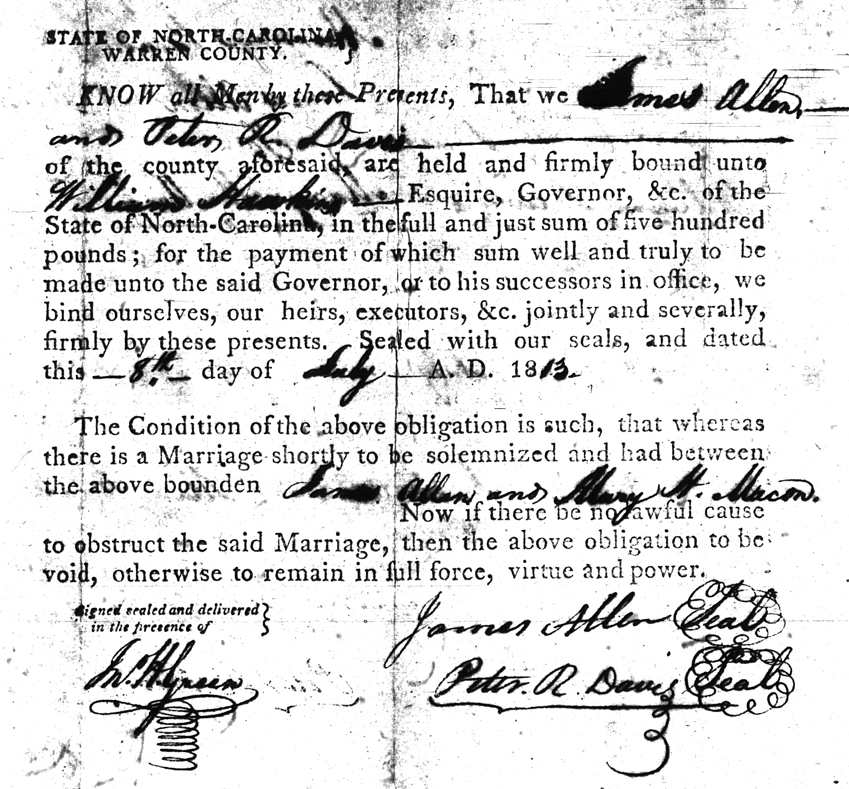 STATE OF NORTH-CAROLINA,
WARREN COUNTY. }
KNOW all Men by these Presents, That we James Allen,
and Peter R. Davis
of the county aforesaid, are held and firmly bound unto
William Hawkins Esquire, Governor, &c. of the
State of North-Carolina, in the full and just sum of five hundred
pounds; for the payment of which sum well and truly to be
made unto the said Governor, or to his successors in office, we
bind ourselves, our heirs, executors, &c. jointly and severally,
firmly by these presents. Sealed with our seals, and dated
this 8th day of July A. D. 1813.
The Condition of the above obligation is such, that whereas
there is a Marriage shortly to be solemnized and had between
the above bounden James Allen and Mary H. Macon.
Now if there be no lawful cause
to obstruct the said Marriage, then the above obligation to be
void, otherwise to remain in full force, virtue and power.
Signed sealed and delivered }
in the presence of
James Allen Seal
Jno. H. Green
Peter. R. Davis Seal